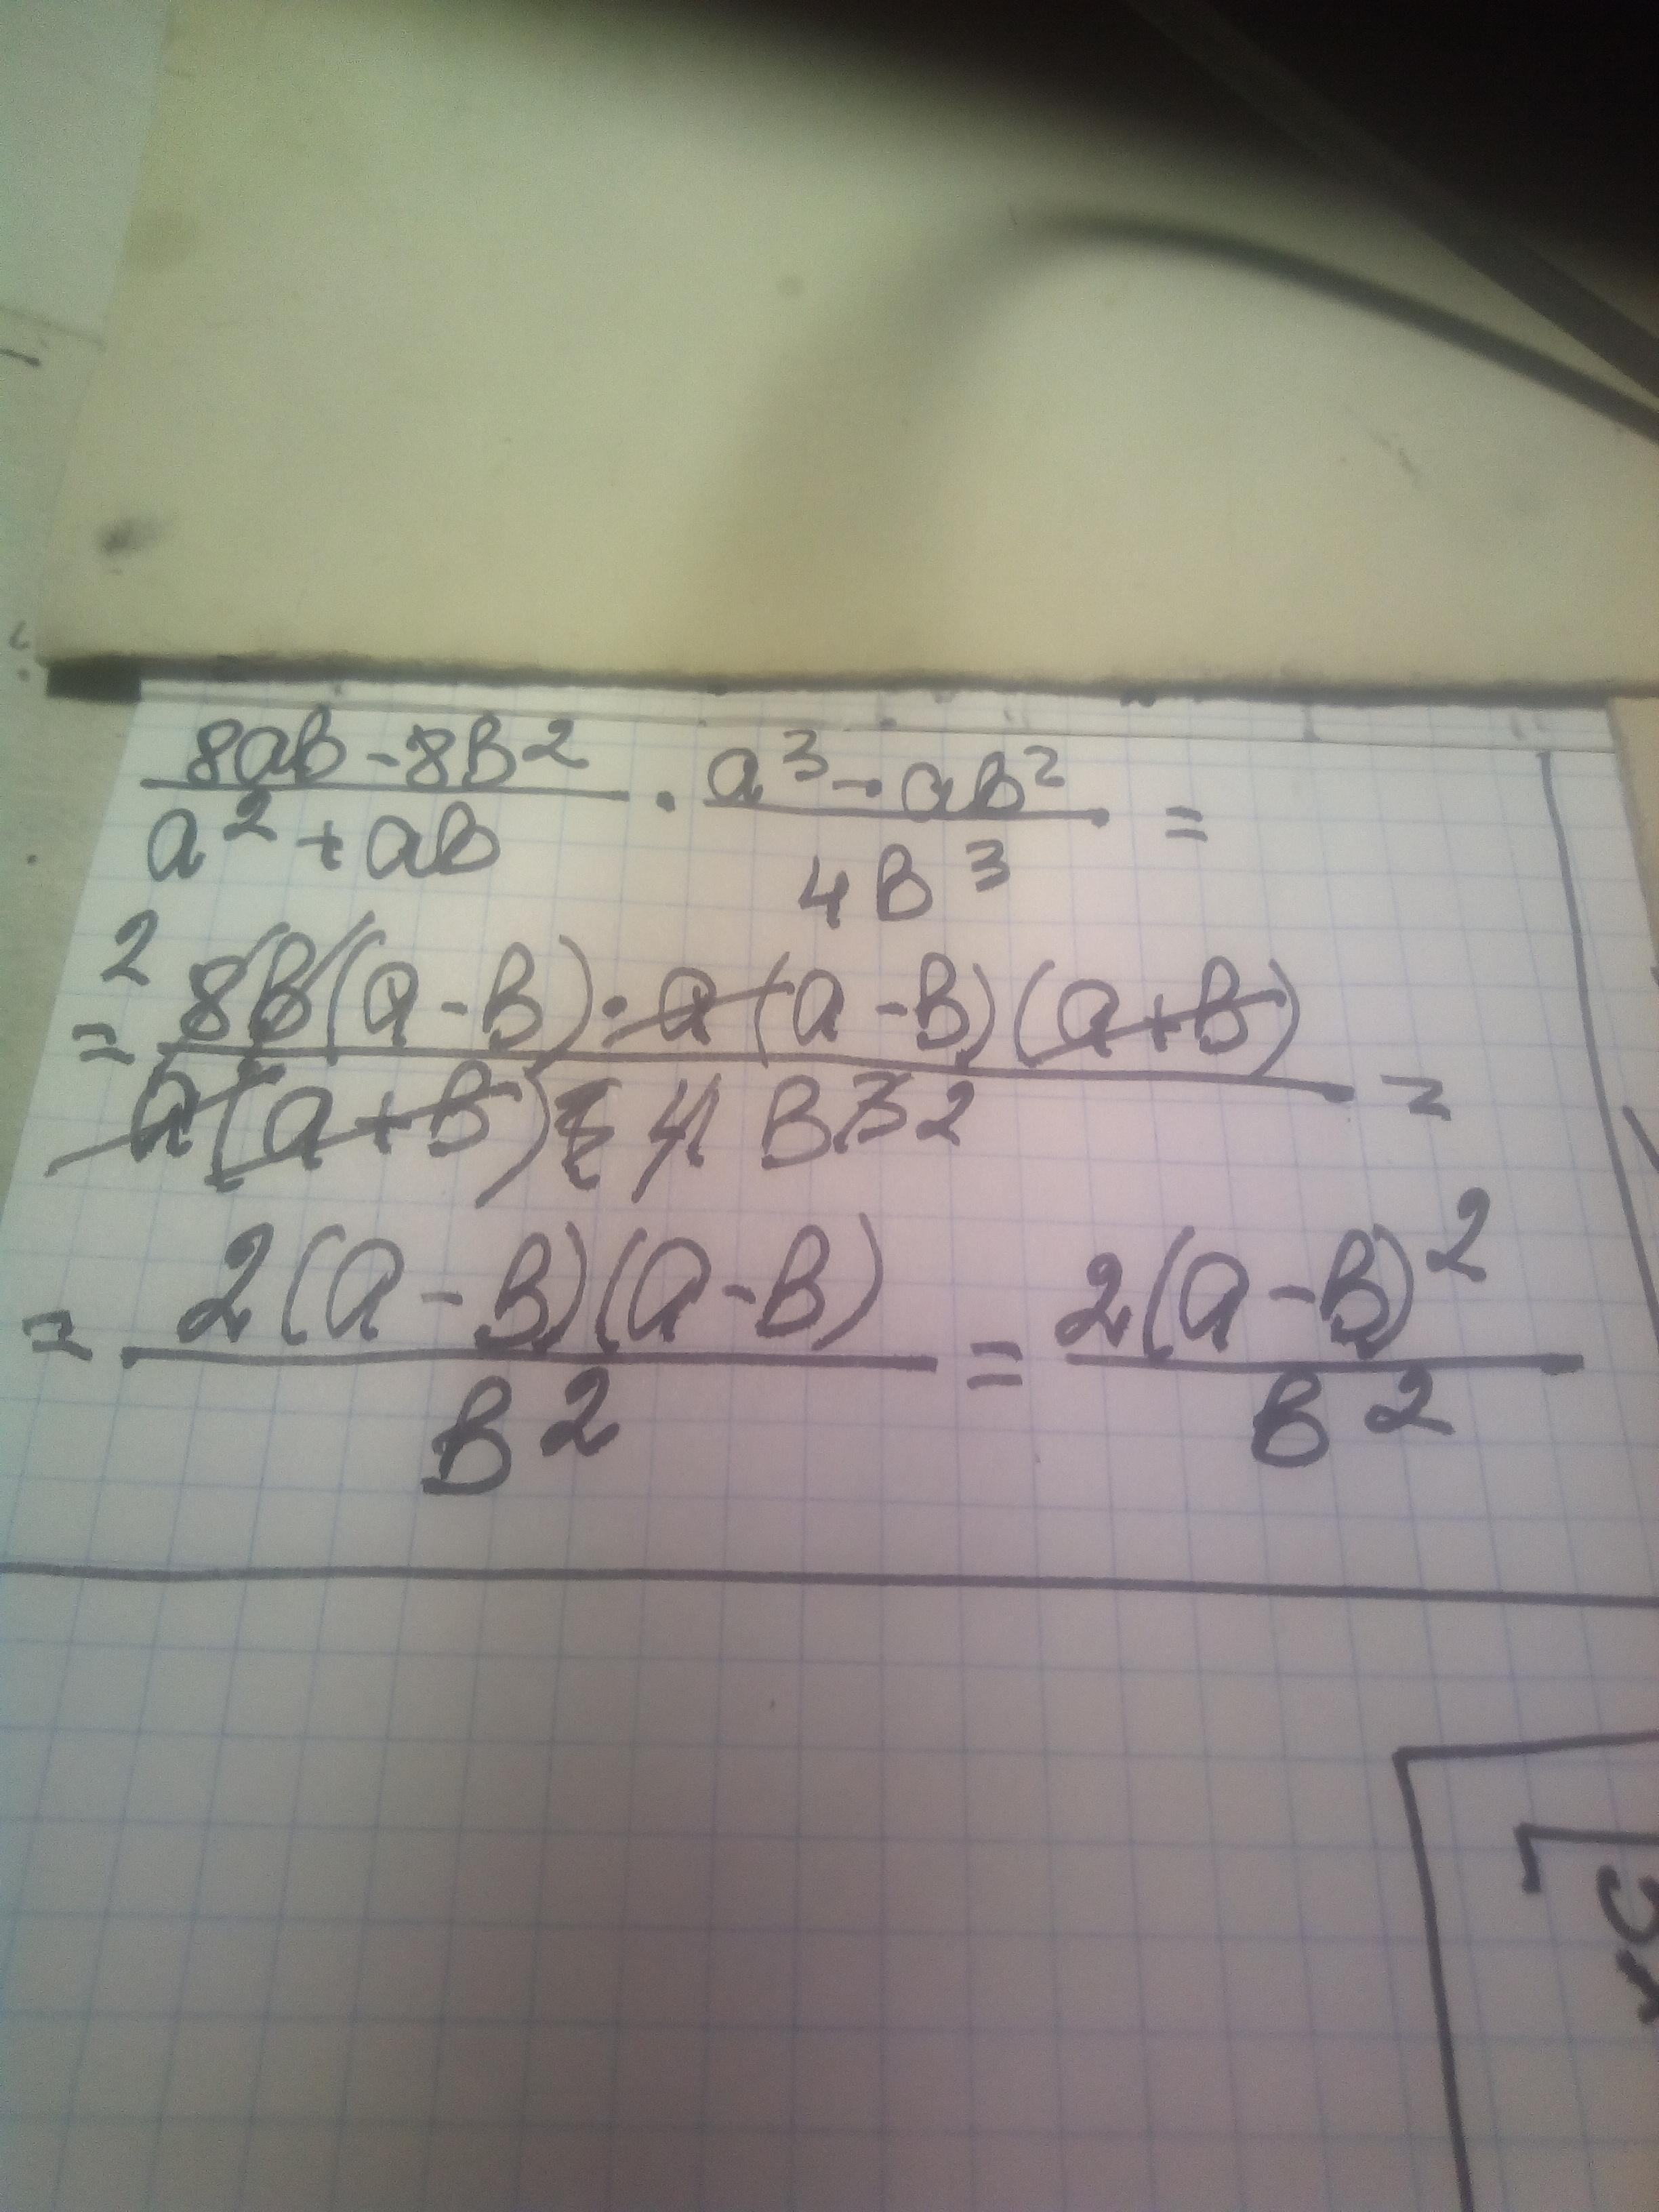 8ab - 8b² / a² + ab · a³ - ab² / 4b³ =
= 2 8b(a - b) · a(a - b)(a + b) / a(a + b) 4b³ 2 =
= 2(a - b)(a - b) / b² = 2(a - b)² / b²